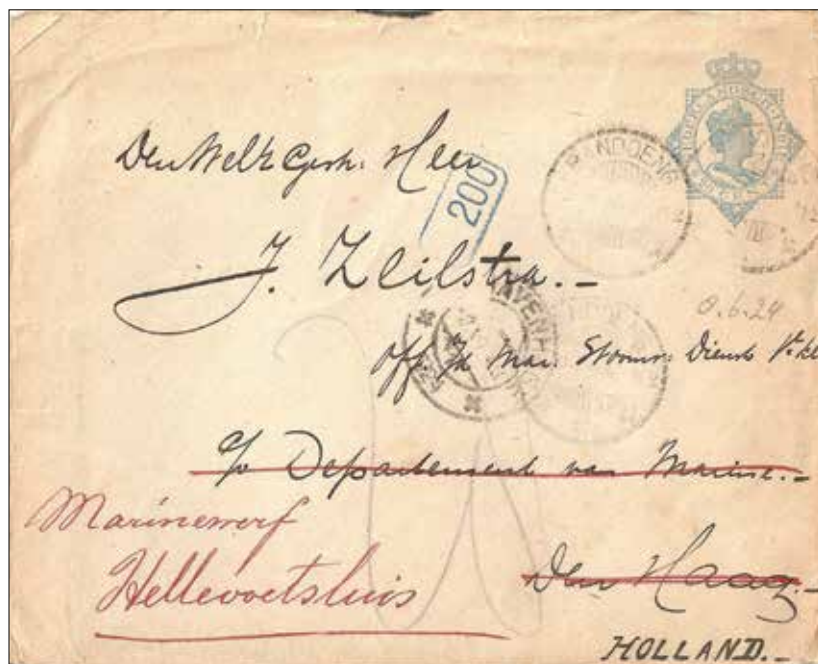 NEDERLANDSCH-INDIE
Den WelEdGestr. Heer
BANDOENG
200
J. Zeilstra.-
8.6.24
Off. Mar. Stoomv. Dienst
c/o Departement van Marine.-
Marinewerf
Hellevoetsluis
Den Haag.-
HOLLAND.-